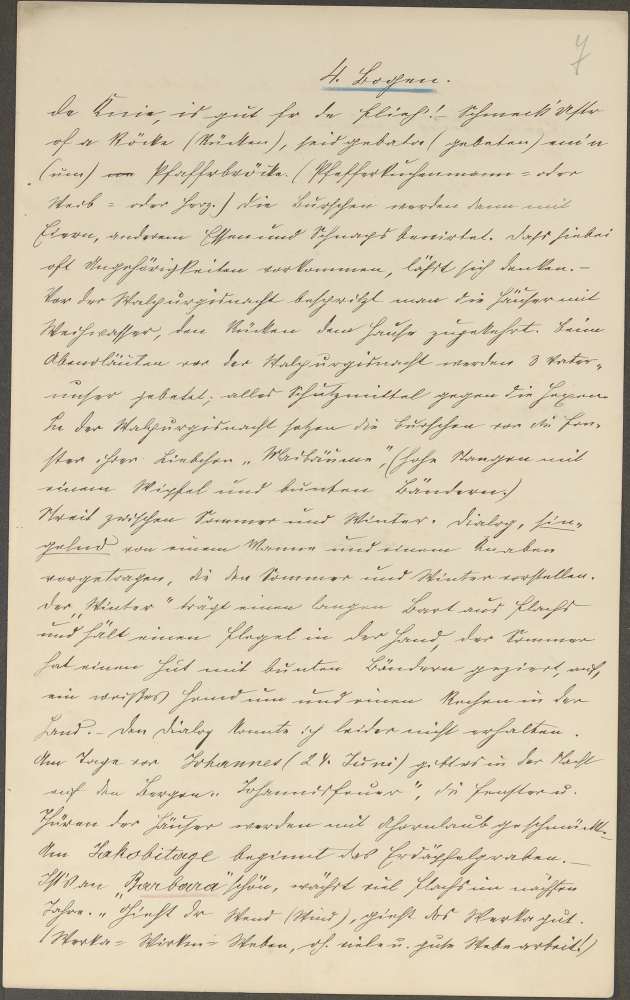 7
4. Bogen.
de Knie, is gut fr de Flieh! Schmeck Ustr
of a Röcke (Rücken), seid gebata (gebeten) em'n
(um) Pfaffrbröcke. (Pfefferkuchenmann- oder
Weib- oder Herz.) Die Burschen werden dann mit
Eiern, anderem Essen und Schnaps bewirtet. Daß hiebei
oft Ungehörigkeiten vorkommen, läßt sich denken. –
Vor der Walpurgisnacht bespritzt man die Häuser mit
Weihwasser, den Rücken dem Hause zugekehrt. Beim
Abendläuten vor der Walpurgisnacht werden 3 Vater-
unser gebetet; alles Schutzmittel gegen die Hexen.
In der Walpurgisnacht setzen die Burschen vor die Fen-
ster ihrer Liebchen „Maibäume", (hohe Stangen mit
einem Wipfel und bunten Bändern.)
Streit zwischen Sommer und Winter. Dialog, sin-
gend von einem Manne und einem Knaben
vorgetragen, die den Sommer und Winter vorstellen.
Der „Winter" trägt einen langen Bart aus Flachs
und hält einen Flegel in der Hand, der Sommer
hat einen Hut mit bunten Bändern geziert, auf,
ein weißes Hemd um und einen Rechen in der
Hand. – Den Dialog konnte ich leider nicht erhalten.
Am Tage vor Johannes (24. Juni) gibt es in der Nacht
auf den Bergen „Johannisfeuer", die Fenster u.
Thüren der Häuser werden mit Ahornlaub geschmückt. –
Am Jakobitage beginnt das Erdäpfelgraben. –
Ist's an "Barbara" schön, wächst viel Flachs im nächsten
Jahre. „Gieht dr Wend (Wind), gieht das Werka gut.
(Werka = Wirken = Weben, d. h. viele u. gute Webearbeit!)